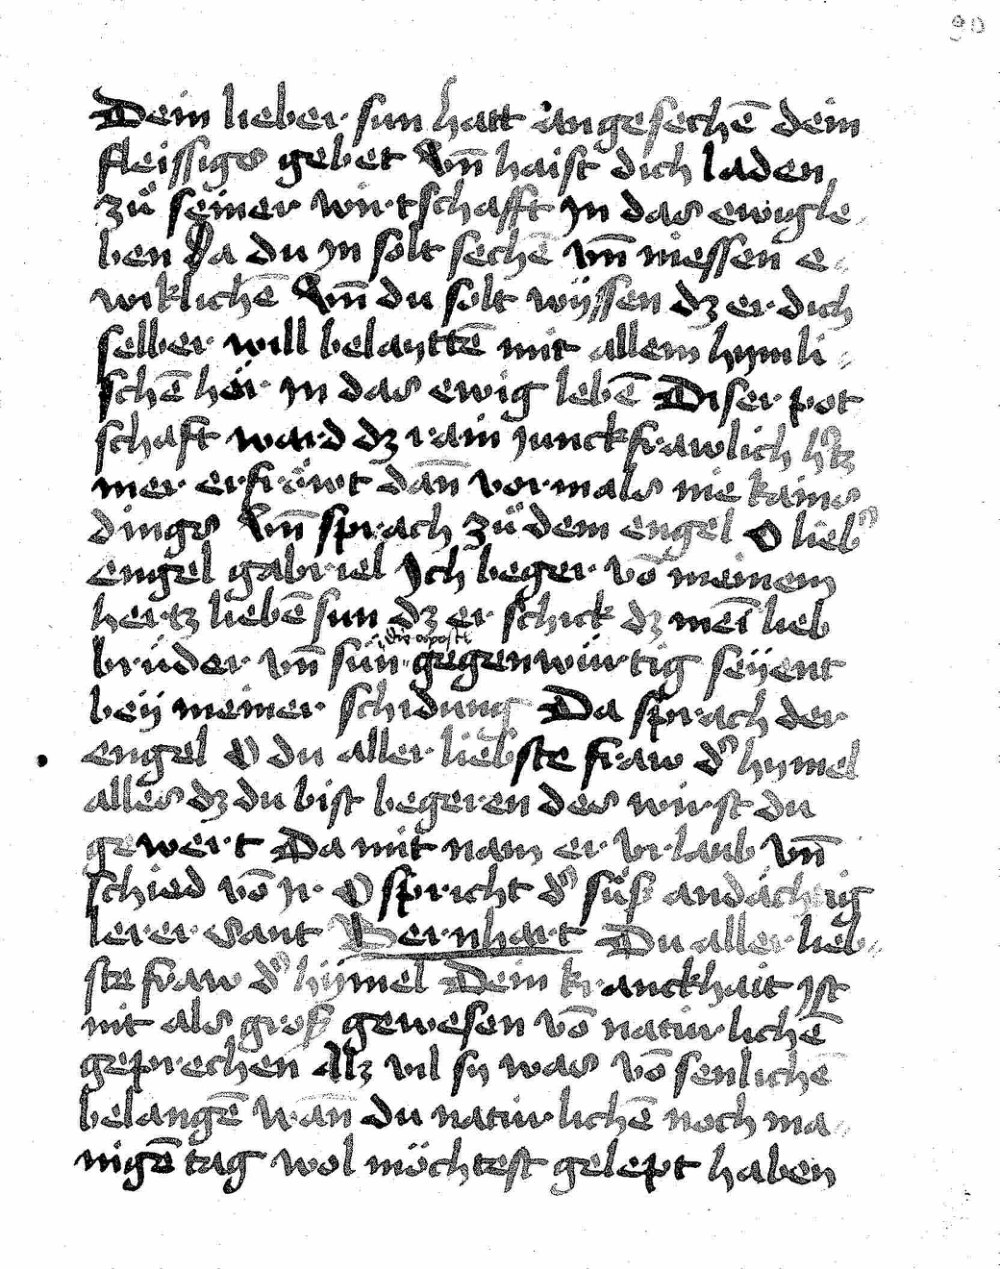 90
Dein lieber sun hatt angesechē dein
fleissigs gebet Vnd̄ haist dich laden
zů seiner wirtschafft jn das ewig le⸗
ben Da du jn solt sechē vnd̄ niessen e⸗
wiklichē Vnd̄ du solt wÿssen dz er dich
selber will belayttē mit allem hymli⸗
schē hör jn das ewig lebē Diser pot
schaft ward dz rain junckfrawlich htz
mer erfröwt dan̄ vormals nie kains
dings Vn̄ sprach zů dem engel O lieb
engel gabriel Ich beger vō meinem
hertz liebē sun dz er schick dz mei lieb
brüder vn̄ sün die apostl gegenwürtig seÿent
beÿ meiner schidung Da sprach der
engel O du aller liebste fraw d hymel
alles dz du bist begeren des wirst du
gewert Da mit nam er vrlaub vn̄
schied vō jr O spricht d süß andächtig
lerer sant Bernhart Du aller lieb⸗
ste fraw d hÿmel Dein kranckhait jst
nit als groß gewesen vō natürlichē
geprechen allz vil sÿ was vō senlichē
belangē wan̄ du natürlichē noch ma⸗
nigē tag wol möchtest gelept haben